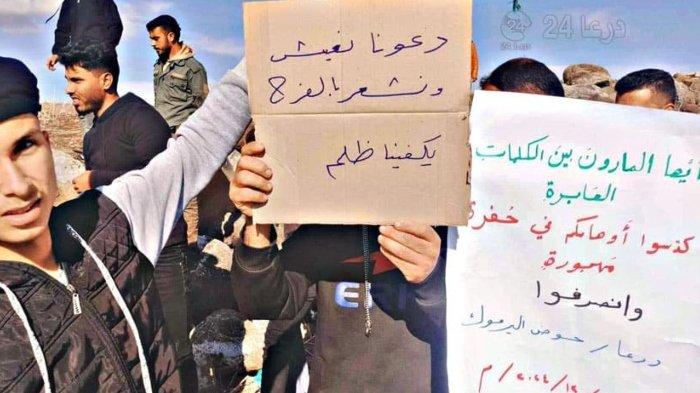 درعا 24
درعا 24
دعونا نعيش
ونشعر بالفرح
يكفينا ظلم
أيها المارون بين الكلمات
العابرة
كدسوا أوهامكم في حفرة
مهجورة
وانصرفوا
درعا / حوض اليرموك